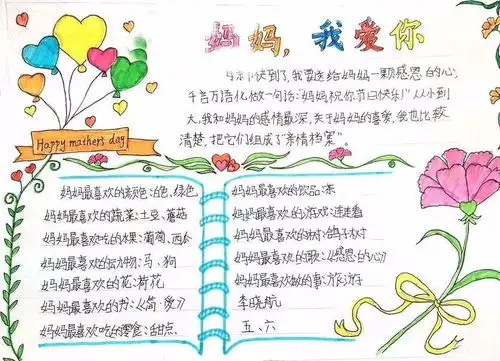 妈妈,我爱你
Happy mother's day
节快到了,我要送给妈妈一颗感恩的心,
千言万语化做一句话:"妈妈祝你节日快乐!"从小到
大,我和妈妈的感情最深,关于妈妈的喜爱,我也比较
清楚,把它们组成了"亲情档案"。
妈妈最喜欢的颜色:白色、绿色
妈妈最喜欢的蔬菜:土豆、蘑菇
妈妈最喜欢吃的水果:葡萄、西瓜
妈妈最喜欢的动物:马、狗
妈妈最喜欢的花:荷花
妈妈最喜欢的书:《简·爱》
妈妈最喜欢吃的零食:甜点
妈妈最喜欢的饮品:茶
妈妈最喜欢的游戏:连连看
妈妈最喜欢的树:鸽子树
妈妈最喜欢的歌:《感恩的心》
妈妈最喜欢做的事:旅游
李晓航
五、六